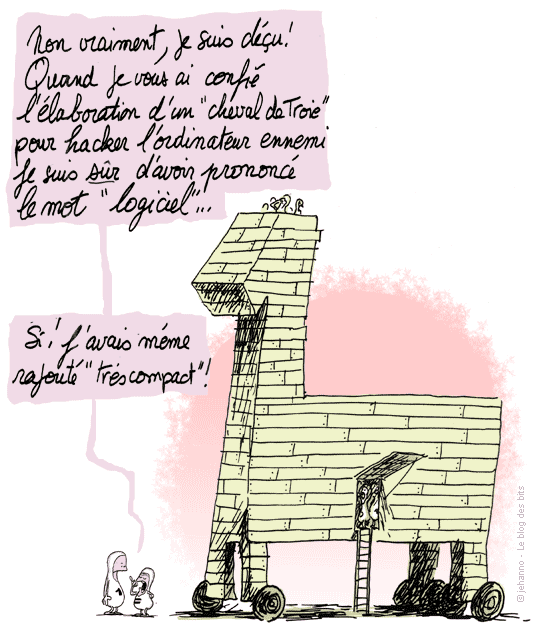 Non vraiment, je suis déçu!
Quand je vous ai confié
l'élaboration d'un "cheval de Troie"
pour hacker l'ordinateur ennemi
je suis sûr d'avoir prononcé
le mot "logiciel"...
Si! j'avais même
rajouté "très compact"!
@jehanno - Le blog des bits